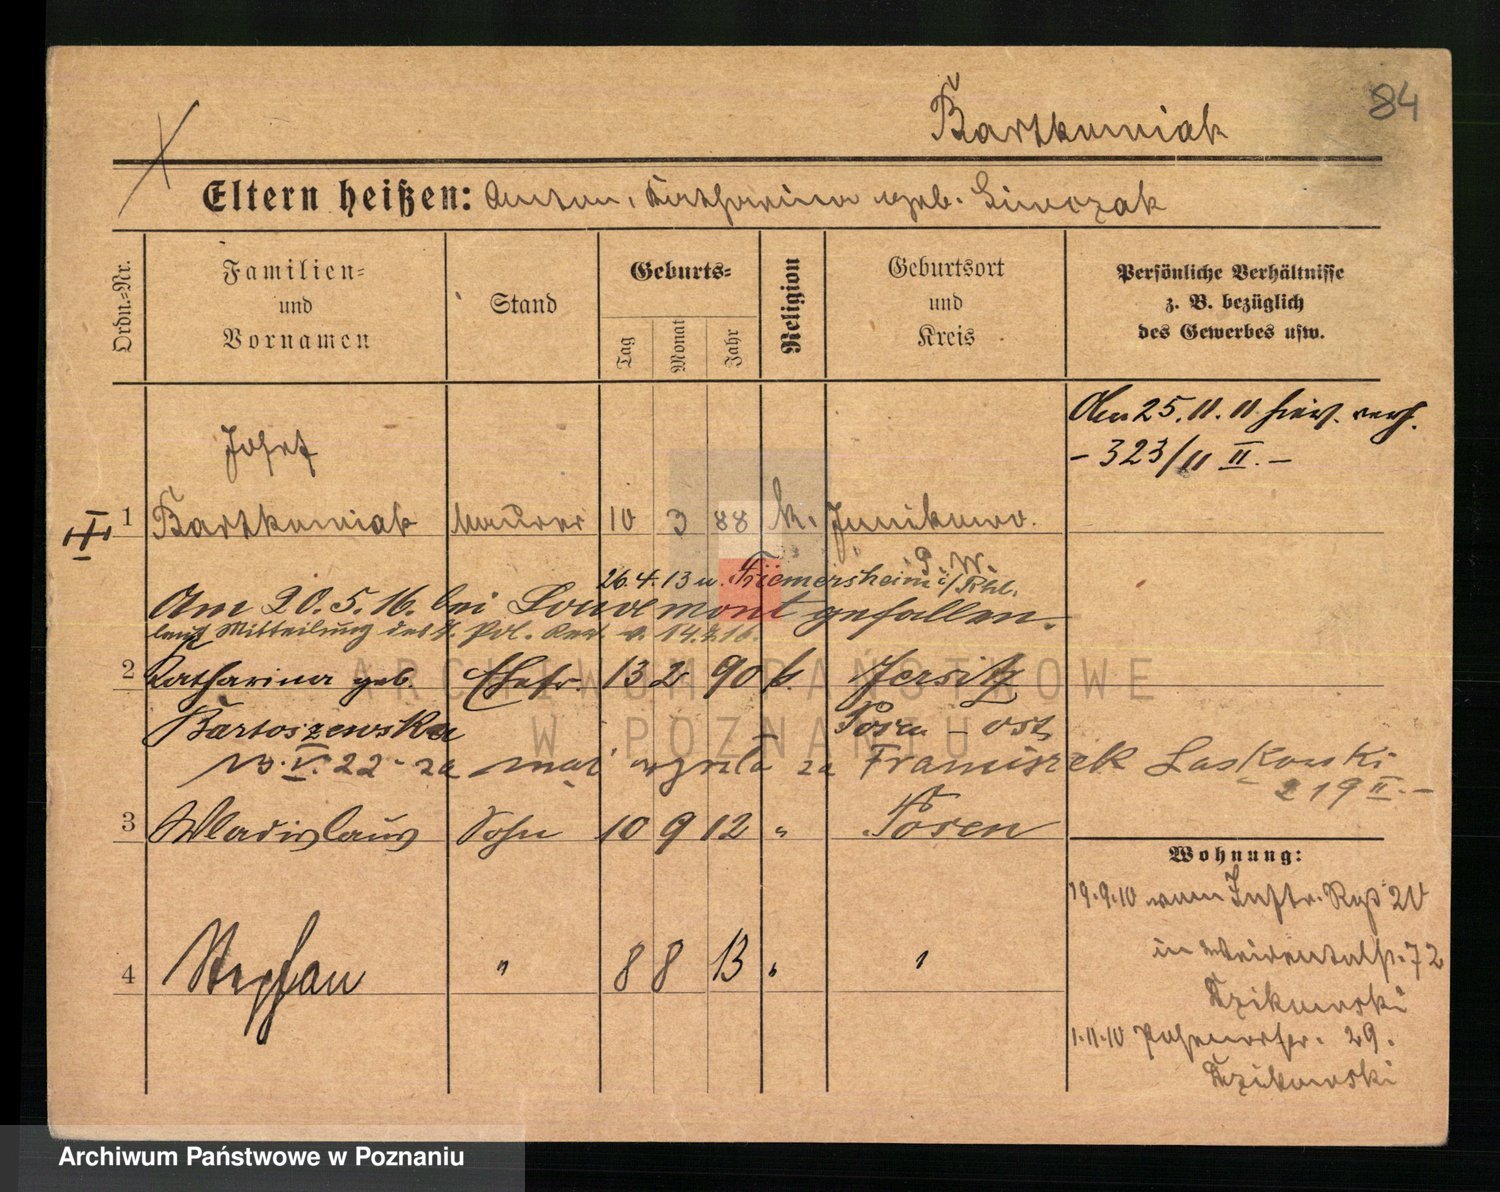 84
Bartkowiak
Eltern heißen: Anton, Katharina geb. Siwczak
Ordn.-Nr.
Familien-
und
Vornamen
Stand
Geburts-
Tag
Monat
Jahr
Religion
Geburtsort
und
Kreis
Persönliche Verhältnisse
z. B. bezüglich
des Gewerbes usw.
Am 25.11.11 hier. verh.
- 323/11 II. -
Josef
1 Bartkowiak Maurer 10 3 88 k. Junikowo.
P. W.
26.4.13 n. Friemersheim i/Rhl.
Am 20.5.16. bei Louvemont gefallen.
laut Mitteilung des K. Pol. Rev. v. 14.7.16.
2 Katharina geb. Ehefr. 13 2 90 k. Jersitz
Bartoszewska Posen - Ost
V. 22 za mąż wyszła za Franciszek Laskowski
219 II. -
3 Wladislaus Sohn 10 9 12 " Posen
Wohnung:
19.9.10 vom Inftr. Rgt 20
in Weidentalst. 72
Dzikowski
4 Stephan " 8 8 13 " "
1.11.10 29.
Dzikowski
ARCHIWUM PAŃSTWOWE
W POZNANIU
Archiwum Państwowe w Poznaniu